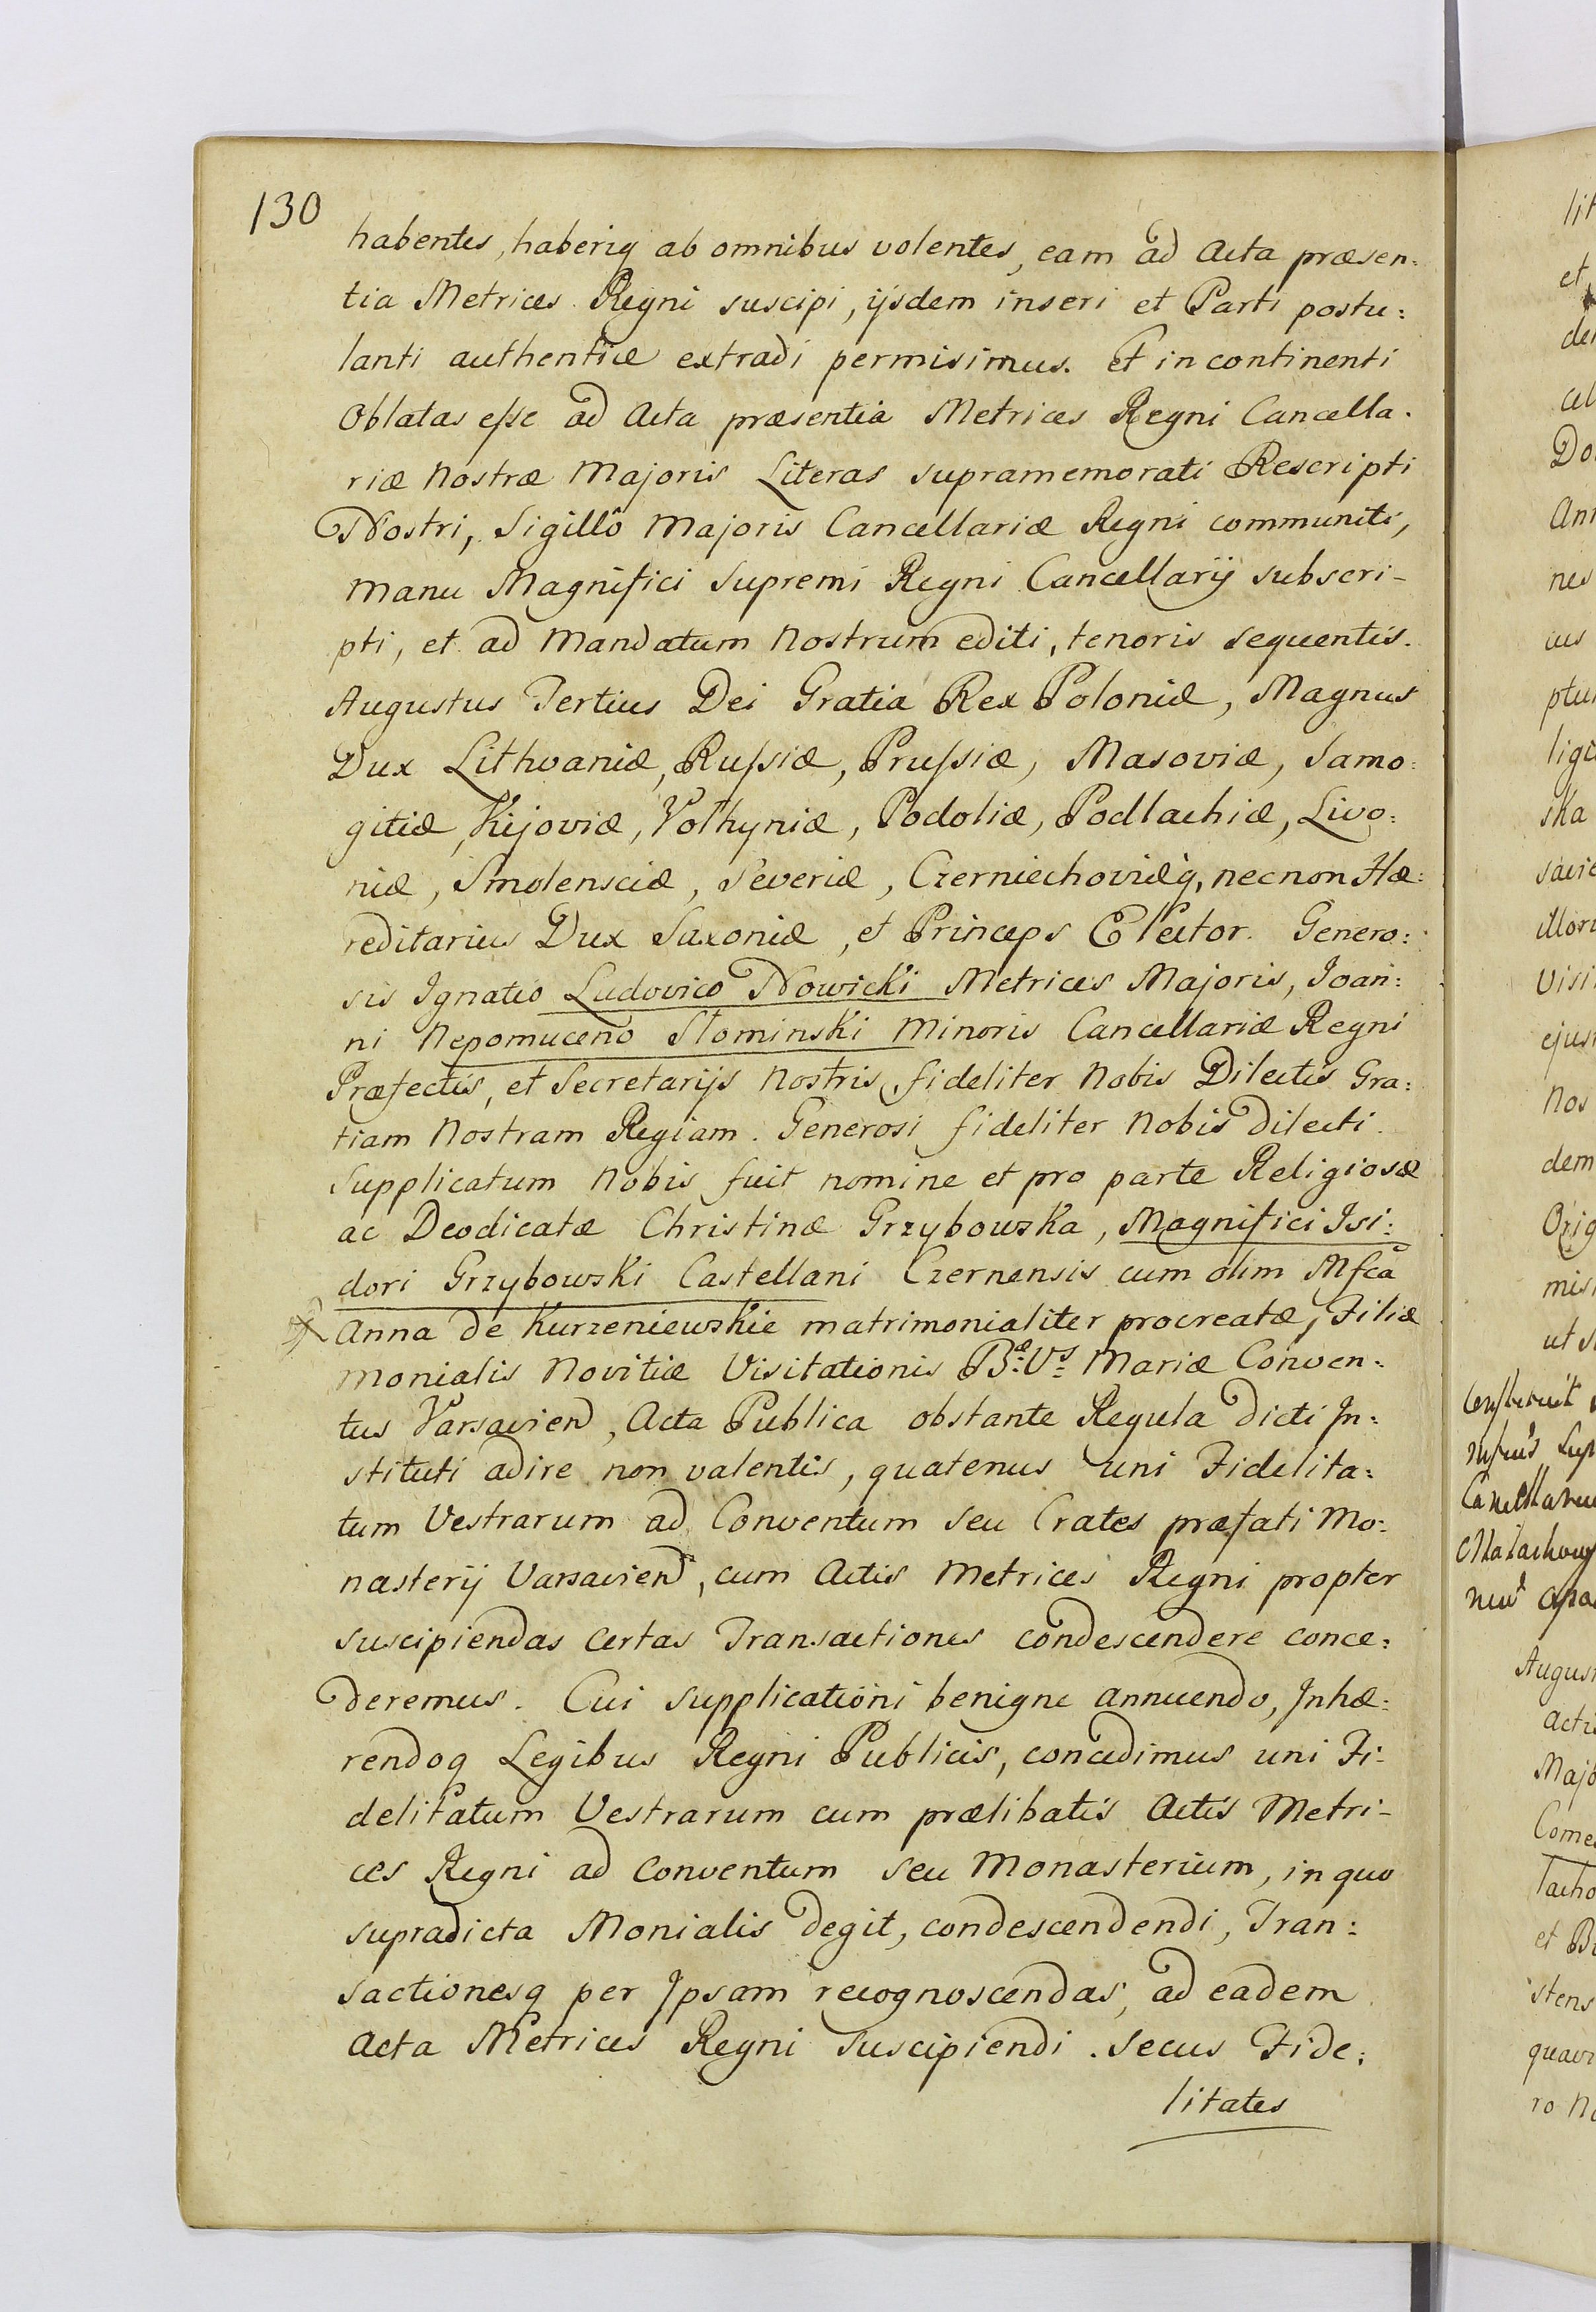 130
habentes, haberiq ab omnibus volentes, eam ad Acta præsen:
tia Metrices Regni suscipi, ijsdem inseri et Parti postu:
lanti authenticè extradi permisimus. Et in continenti
Oblatas eſse ad Acta præsentia Metrices Regni Cancella.
riæ Nostræ Majoris Literas supramemorati Rescripti
Nostri, Sigillô Majoris Cancellariæ Regni communiti,
Manu Magnifici Supremi Regni Cancellarij subscri-
pti, et ad Mandatum Nostrum editi, tenoris sequentis.
Augustus Tertius Dei Gratia Rex Poloniæ, Magnus
Dux Lithvaniæ, Ruſsiæ, Pruſsiæ, Masoviæ, Samo:
gitiæ, Kijoviæ, Volhyniæ, Podoliæ, Podlachiæ, Livo:
niæ, Smolensciæ, Severiæ, Czerniechoviæq, necnon Hæ:
reditarius Dux Saxoniæ, et Princeps Elector. Genero:
sis Ignatio Ludovico Nowicki Metrices Majoris, Ioan:
ni Nepomuceno Słominski Minoris Cancellariæ Regni
Præfectis, et Secretarijs Nostris, fideliter Nobis Dilectis Gra:
tiam Nostram Regiam. Generosi fideliter Nobis Dilecti.
Supplicatum Nobis fuit nomine et pro parte Religiosæ
ac Deodicatæ Christinæ Grzybowska, Magnifici Isi:
dori Grzybowski Castellani Czernensis cum olim Mfca
Anna de Kurzeniewskie matrimonialiter procreatæ, Filiæ
Monialis Novitiæ Visitationis Bæ: Vs: Mariæ Conven:
tus Varsavien, Acta Publica obstante Regula dicti In:
stituti adire non valentis, quatenus uni Fidelita:
tum Vestrarum ad Conventum seu Crates præfati Mo:
nasterij Varsavien, cum Actis Metrices Regni propter
suscipiendas certas Transactiones condescendere conce:
deremus. Cui supplicationi benigne annuendo, Inhæ:
rendoq Legibus Regni Publicis, concedimus uni Fi:
delitatum Vestrarum cum prælibatis Actis Metri-
ces Regni ad Conventum seu Monasterium, in quo
supradicta Monialis degit, condescendendi, Tran:
sactionesq per Ipsam recognoscendas, ad eadem
Acta Metrices Regni suscipiendi. Secus Fide:
litates